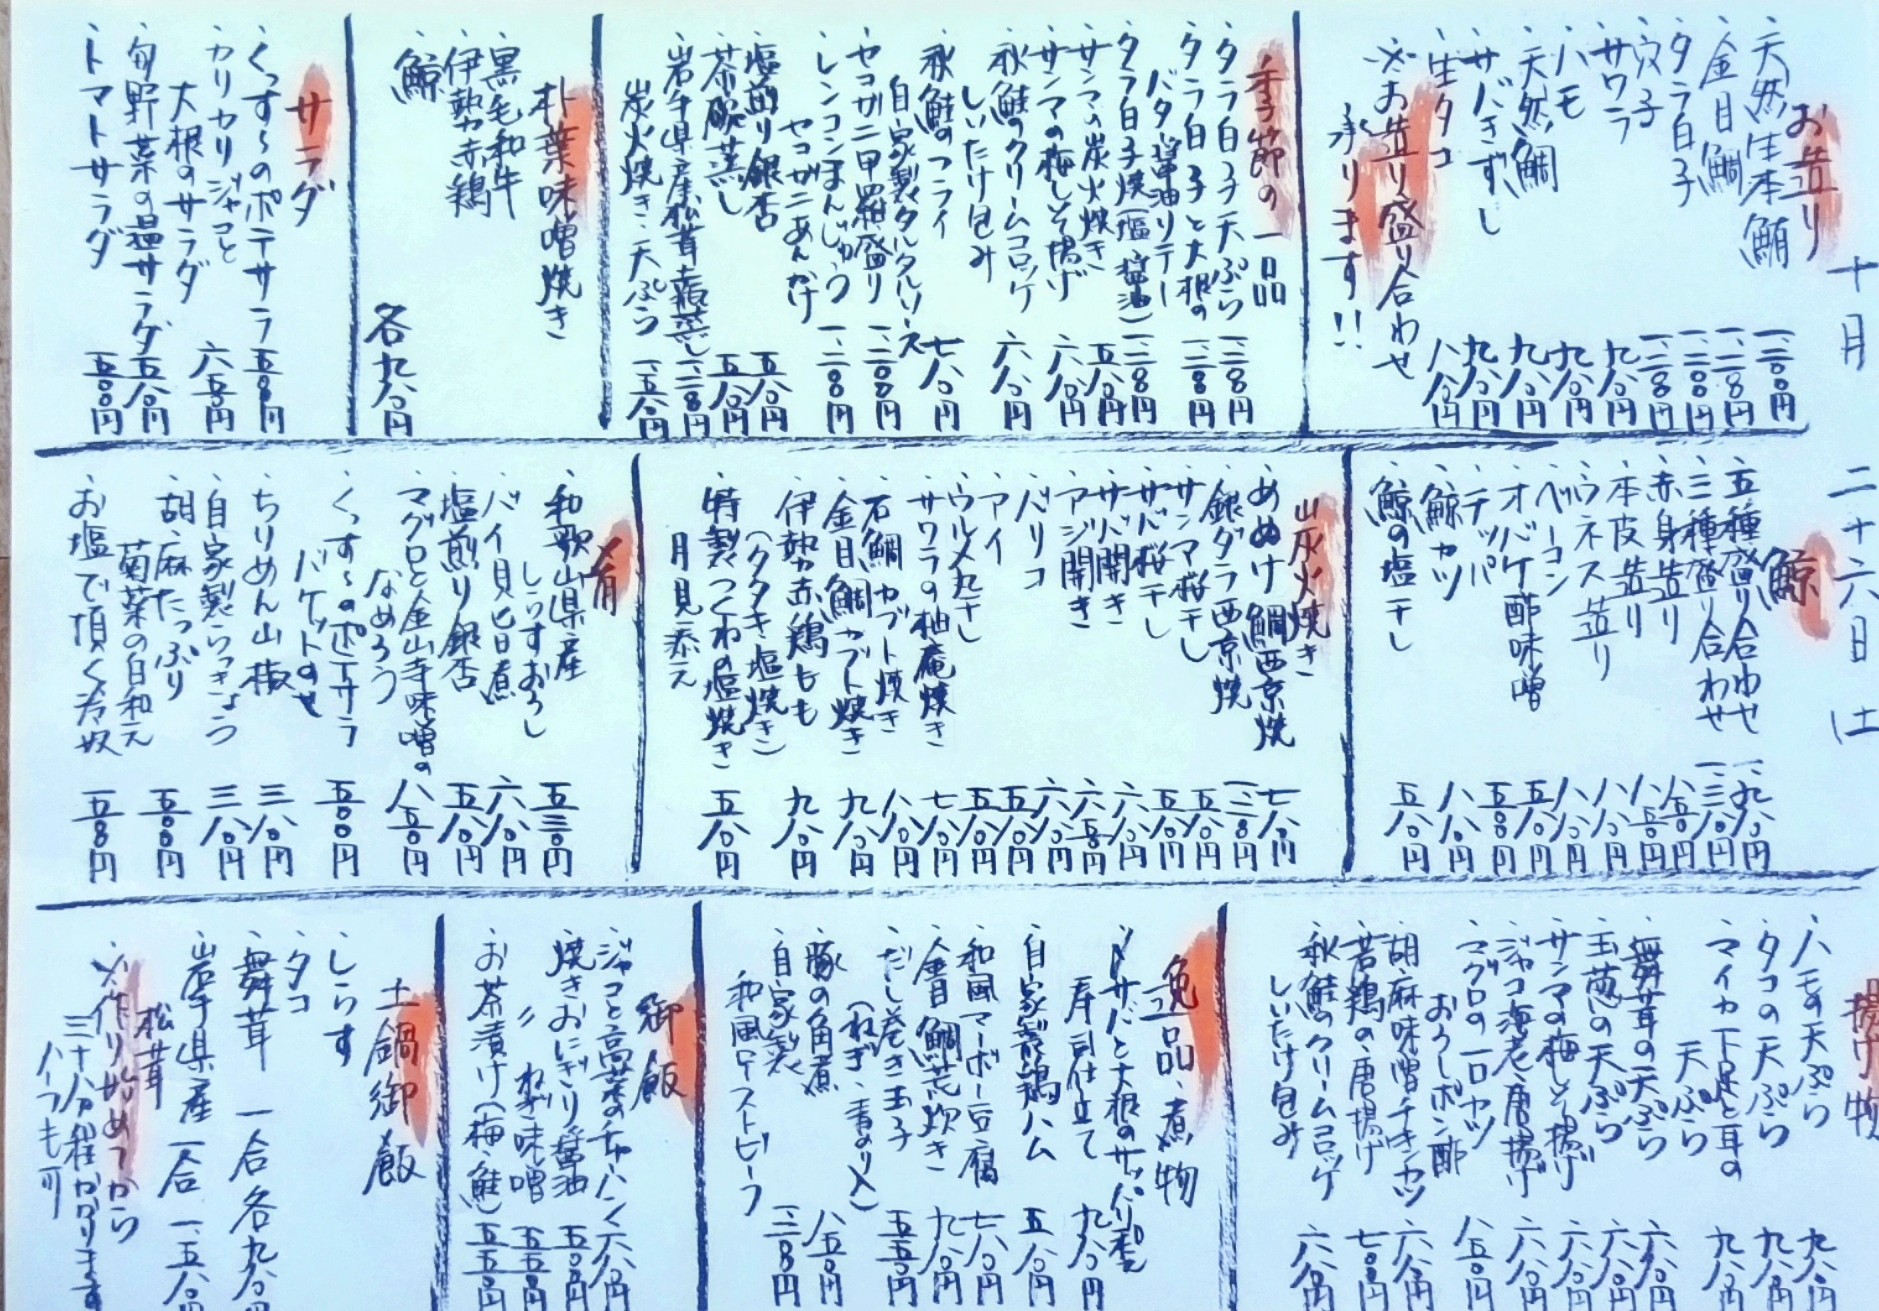 十月二十六日 土
お造り
・天然生本鮪 一、二〇〇円
・金目鯛 一、二八〇円
・タラ白子 一、二〇〇円
・穴子 一、二八〇円
・サワラ 九八〇円
・ハモ 九八〇円
・天然鯛 九八〇円
・サバきずし 九八〇円
・生タコ 八八〇円
※お造り盛り合わせ
承ります!!
季節の一品
・タラ白子天ぷら 一、二八〇円
・タラ白子と大根の
バター醤油ソテー 一、二八〇円
・タラ白子焼(塩・醤油) 一、二八〇円
・サンマの炭火焼き 五八〇円
・サンマの梅しそ揚げ 六八〇円
・秋鮭のクリームコロッケ
しいたけ包み 六八〇円
・秋鮭のフライ
自家製タルタルソース 七八〇円
・セコガニ甲羅盛り 一、二〇〇円
・レンコンまんじゅう
セコガニあんかけ 一、二八〇円
・塩煎り銀杏 五八〇円
・茶碗蒸し 五八〇円
・岩手県産松茸土瓶蒸し 一、二八〇円
炭火焼き・天ぷら 一、五八〇円
朴葉味噌焼き
・黒毛和牛
・伊勢赤鶏
・鯨
各九八〇円
サラダ
・くっすーのポテサラ 五八〇円
・カリカリジャコと
大根のサラダ 六五〇円
・旬野菜の温サラダ 五八〇円
・トマトサラダ 五〇〇円
鯨
・五種盛り合わせ 一、九八〇円
・三種盛り合わせ 一、三八〇円
・赤身造り 八五〇円
・本皮造り 八五〇円
・ウネス造り 八八〇円
・ベーコン 八八〇円
・オバケ酢味噌 五八〇円
・テッパ 五〇〇円
・鯨カツ 八八〇円
・鯨の塩干し 五八〇円
炭火焼き
・めぬけ鯛西京焼 七八〇円
・銀ダラ西京焼 一、二八〇円
・サンマ桜干し 五八〇円
・サバ桜干し 五八〇円
・サバ開き 六八〇円
・アジ開き 六五〇円
・バリコ 六八〇円
・アイ 五八〇円
・ウルメ丸干し 五八〇円
・サワラの柚庵焼き 七八〇円
・石鯛カブト焼き 八八〇円
・金目鯛カブト焼き 九八〇円
・伊勢赤鶏もも
(タタキ・塩焼き) 九八〇円
・特製つくねの塩焼き 五八〇円
月見添え
肴
・和歌山県産
しらすおろし 五三〇円
・バイ貝旨煮 六八〇円
・塩煎り銀杏 五八〇円
・マグロと金山寺味噌の
なめろう 八五〇円
・くっすーのポテサラ
バケットのせ 五〇〇円
・ちりめん山椒 三八〇円
・自家製らっきょう 三八〇円
・胡麻たっぷり
菊菜の白和え 五〇〇円
・お塩で頂く冷奴 五八〇円
揚げ物
・ハモの天ぷら 九八〇円
・タコの天ぷら 九八〇円
・マイカ下足と耳の
天ぷら 九八〇円
・舞茸の天ぷら 六八〇円
・玉葱の天ぷら 六八〇円
・サンマの梅しそ揚げ 六八〇円
・ジャコ海老唐揚げ 六八〇円
・マグロの一口カツ
おろしポン酢 八五〇円
・胡麻味噌チキンカツ 六八〇円
・若鶏の唐揚げ 七八〇円
・秋鮭のクリームコロッケ
しいたけ包み 六八〇円
逸品・煮物
・〆サバと大根のサッパリ和え
寿司仕立て 九八〇円
・自家製鶏ハム 五八〇円
・和風マーボー豆腐 七八〇円
・金目鯛荒炊き 九八〇円
・だし巻き玉子
(ねぎ・青のり入) 五五〇円
・豚の角煮 八五〇円
・自家製
和風ローストビーフ 一、二八〇円
御飯
・ジャコと高菜のチャーハン 六八〇円
・焼きおにぎり醤油 五〇〇円
〃 ねぎ味噌 五五〇円
・お茶漬け(梅・鮭) 五五〇円
土鍋御飯
・しらす
・タコ
・舞茸 一合各九八〇円
・岩手県産
松茸 一合 一、五八〇円
※作り始めてから
三十分程かかります
ハーフも可